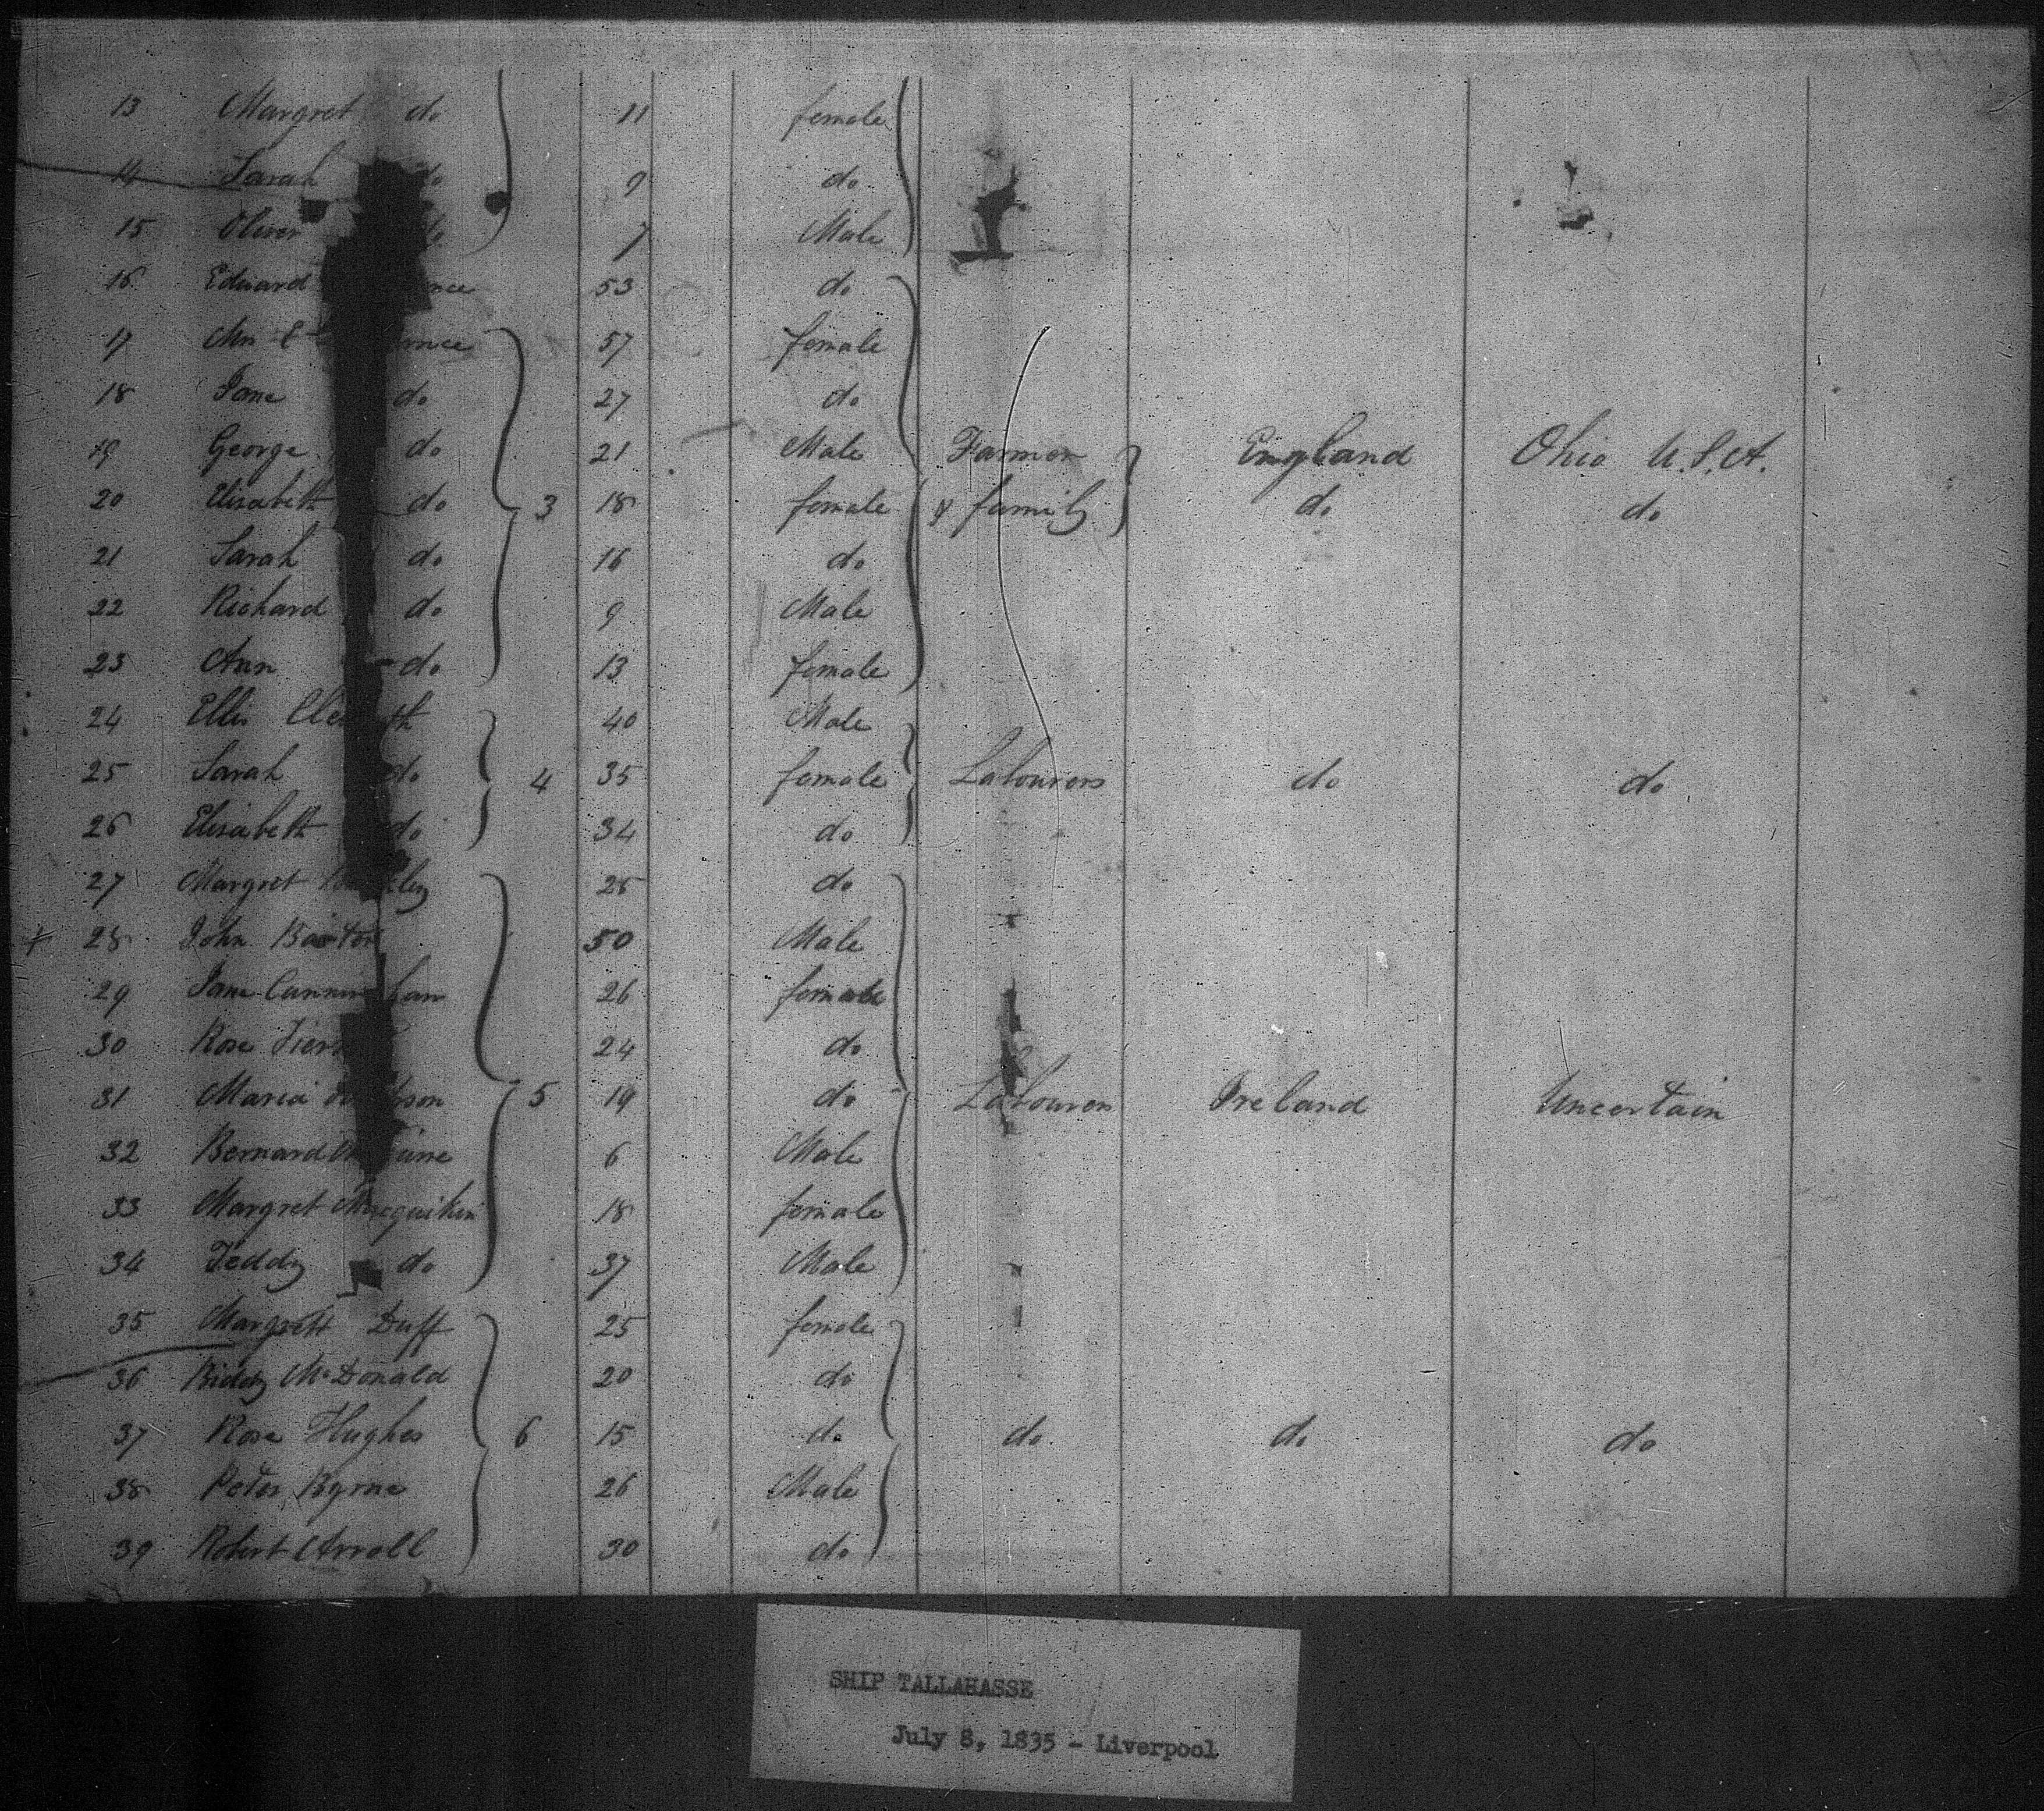 13 Margret do 11 female
14 Sarah do 9 do
15 Oliver do 7 Male
16 Edward nce 53 do
17 Ann rence 57 female
18 Jane do 27 do
19 George do 21 Male Farmer England Ohio U.S.A.
20 Elisabeth do 3 18 female & family do do
21 Sarah do 16 do
22 Richard do 9 Male
23 Ann do 13 female
24 Ellis 40 Male
25 Sarah do 4 35 female Labourers do do
26 Elisabeth do 34 do
27 Margret 25 do
+ 28 John Barton 50 Male
29 Jane 26 female
30 Rose 24 do
31 Maria 5 19 do Labourer Ireland Uncertain
32 Bernard 6 Male
33 Margret 18 female
34 Teddy do 37 Male
35 Margrett Duff 25 female
36 Biddy McDonald 20 do
37 Rose Hughes 6 15 do do do do
38 Peter Byrne 26 Male
39 Robert Arroll 30 do
SHIP TALLAHASSE
July 8, 1835 - Liverpool